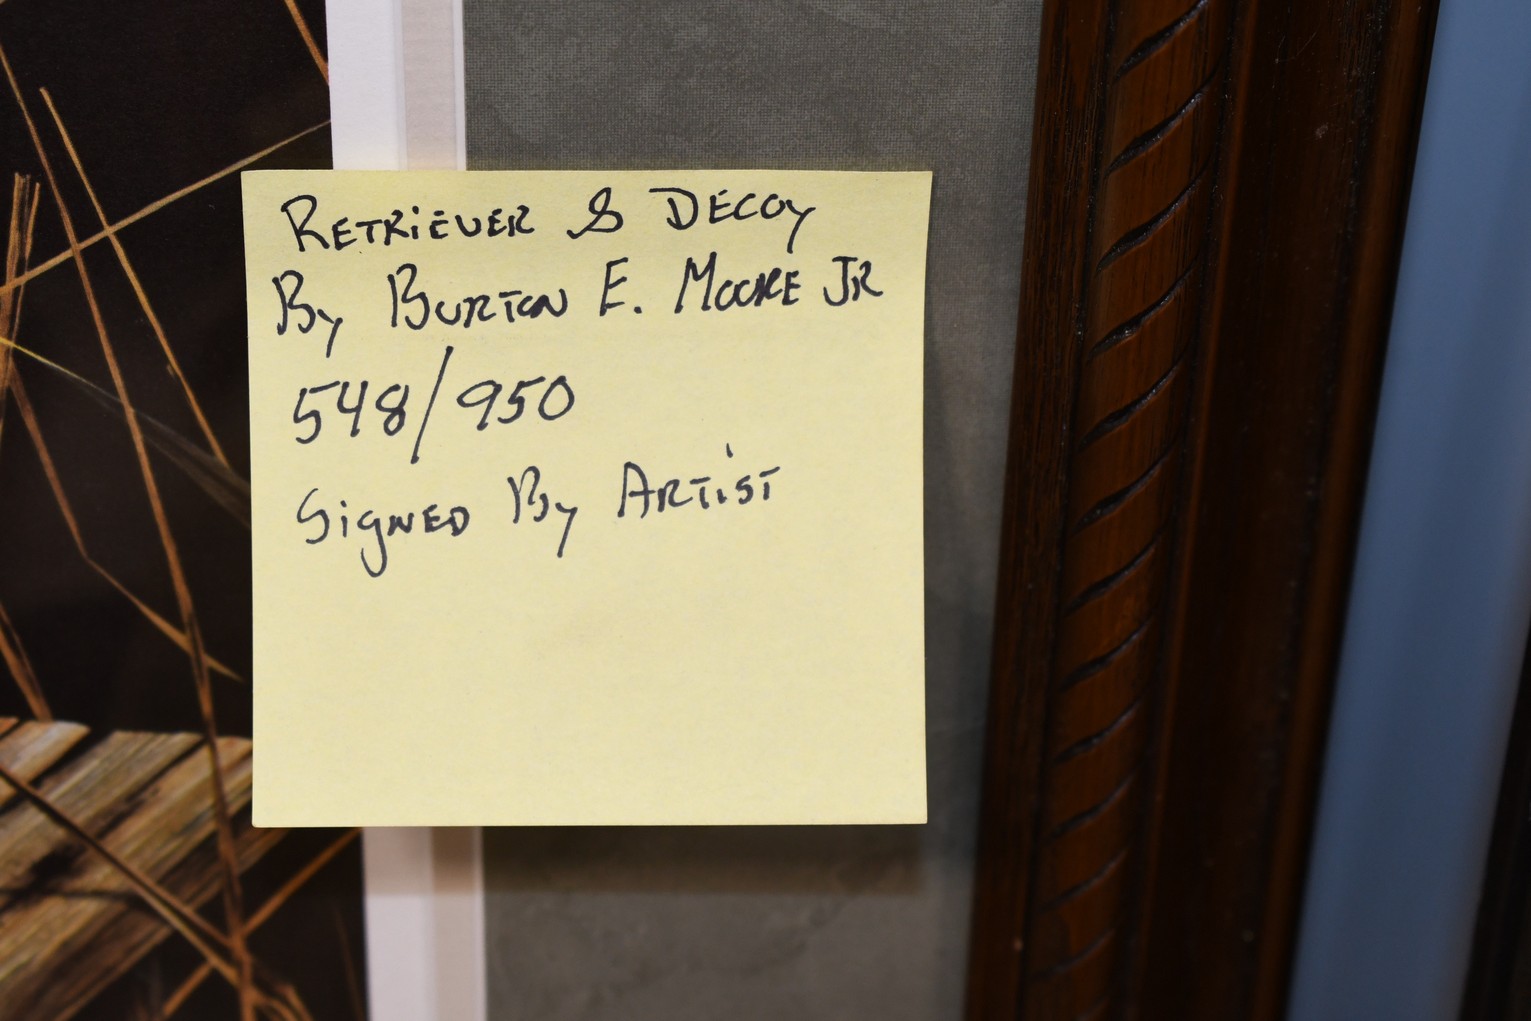 RETRiEVER & DECOy
By BURTON E. MOORE JR
548/950
SigNED By ARTiST